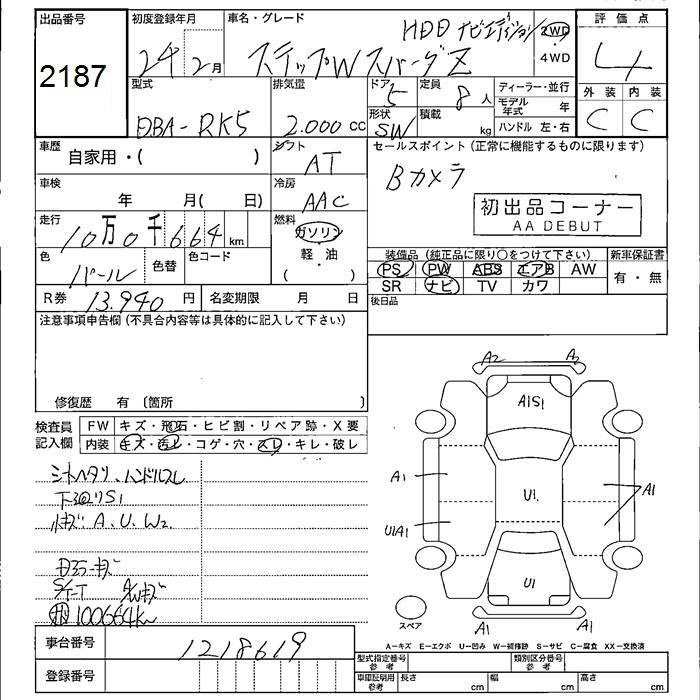 出品番号 初度登録年月 車名・グレード 評価点
2187
24年2月 ステップW スパーダZ HDD ナビエディション 2WD 4WD 4
型式 排気量 ドア 定員 ディーラー・並行 外装 内装
DBA-RK5 2.000cc 5 8人 モデル年式 年 C C
形状 積載 ハンドル 左・右
SW kg
車歴 自家用・( ) シフト AT セールスポイント(正常に機能するものに限ります)
Bカメラ
車検 年 月( 日) 冷房 AAC
初出品コーナー
AA DEBUT
走行 10万0千664km 燃料 ガソリン
軽・油
( )
色 パール 色替 色コード
装備品(純正品に限り○をつけて下さい) 新車保証書
PS PW ABS エアB AW 有・無
SR ナビ TV カワ
R券 13.940円 名変期限 月 日 後日品
注意事項申告欄(不具合内容等は具体的に記入して下さい)
修復歴 有〔箇所 〕
検査員記入欄 FW キズ・飛石・ヒビ割・リペア跡・X要
内装 キズ・汚レ・コゲ・穴・スレ・キレ・破レ
シートヘタリ、ハンドルスレ
下廻りS1
小キズ A、U、W2
100664km
A2 A2
A1S1
A1 U1 A1
U1A1
U1
A1 A1
スペア
A-キズ E-エクボ U-凹み W-補修跡 S-サビ C-腐食 XX-交換済
車台番号 1218619
登録番号
型式指定番号 参考 類別区分番号 参考
車庫証明用 参考 長さ cm 幅 cm 高さ cm